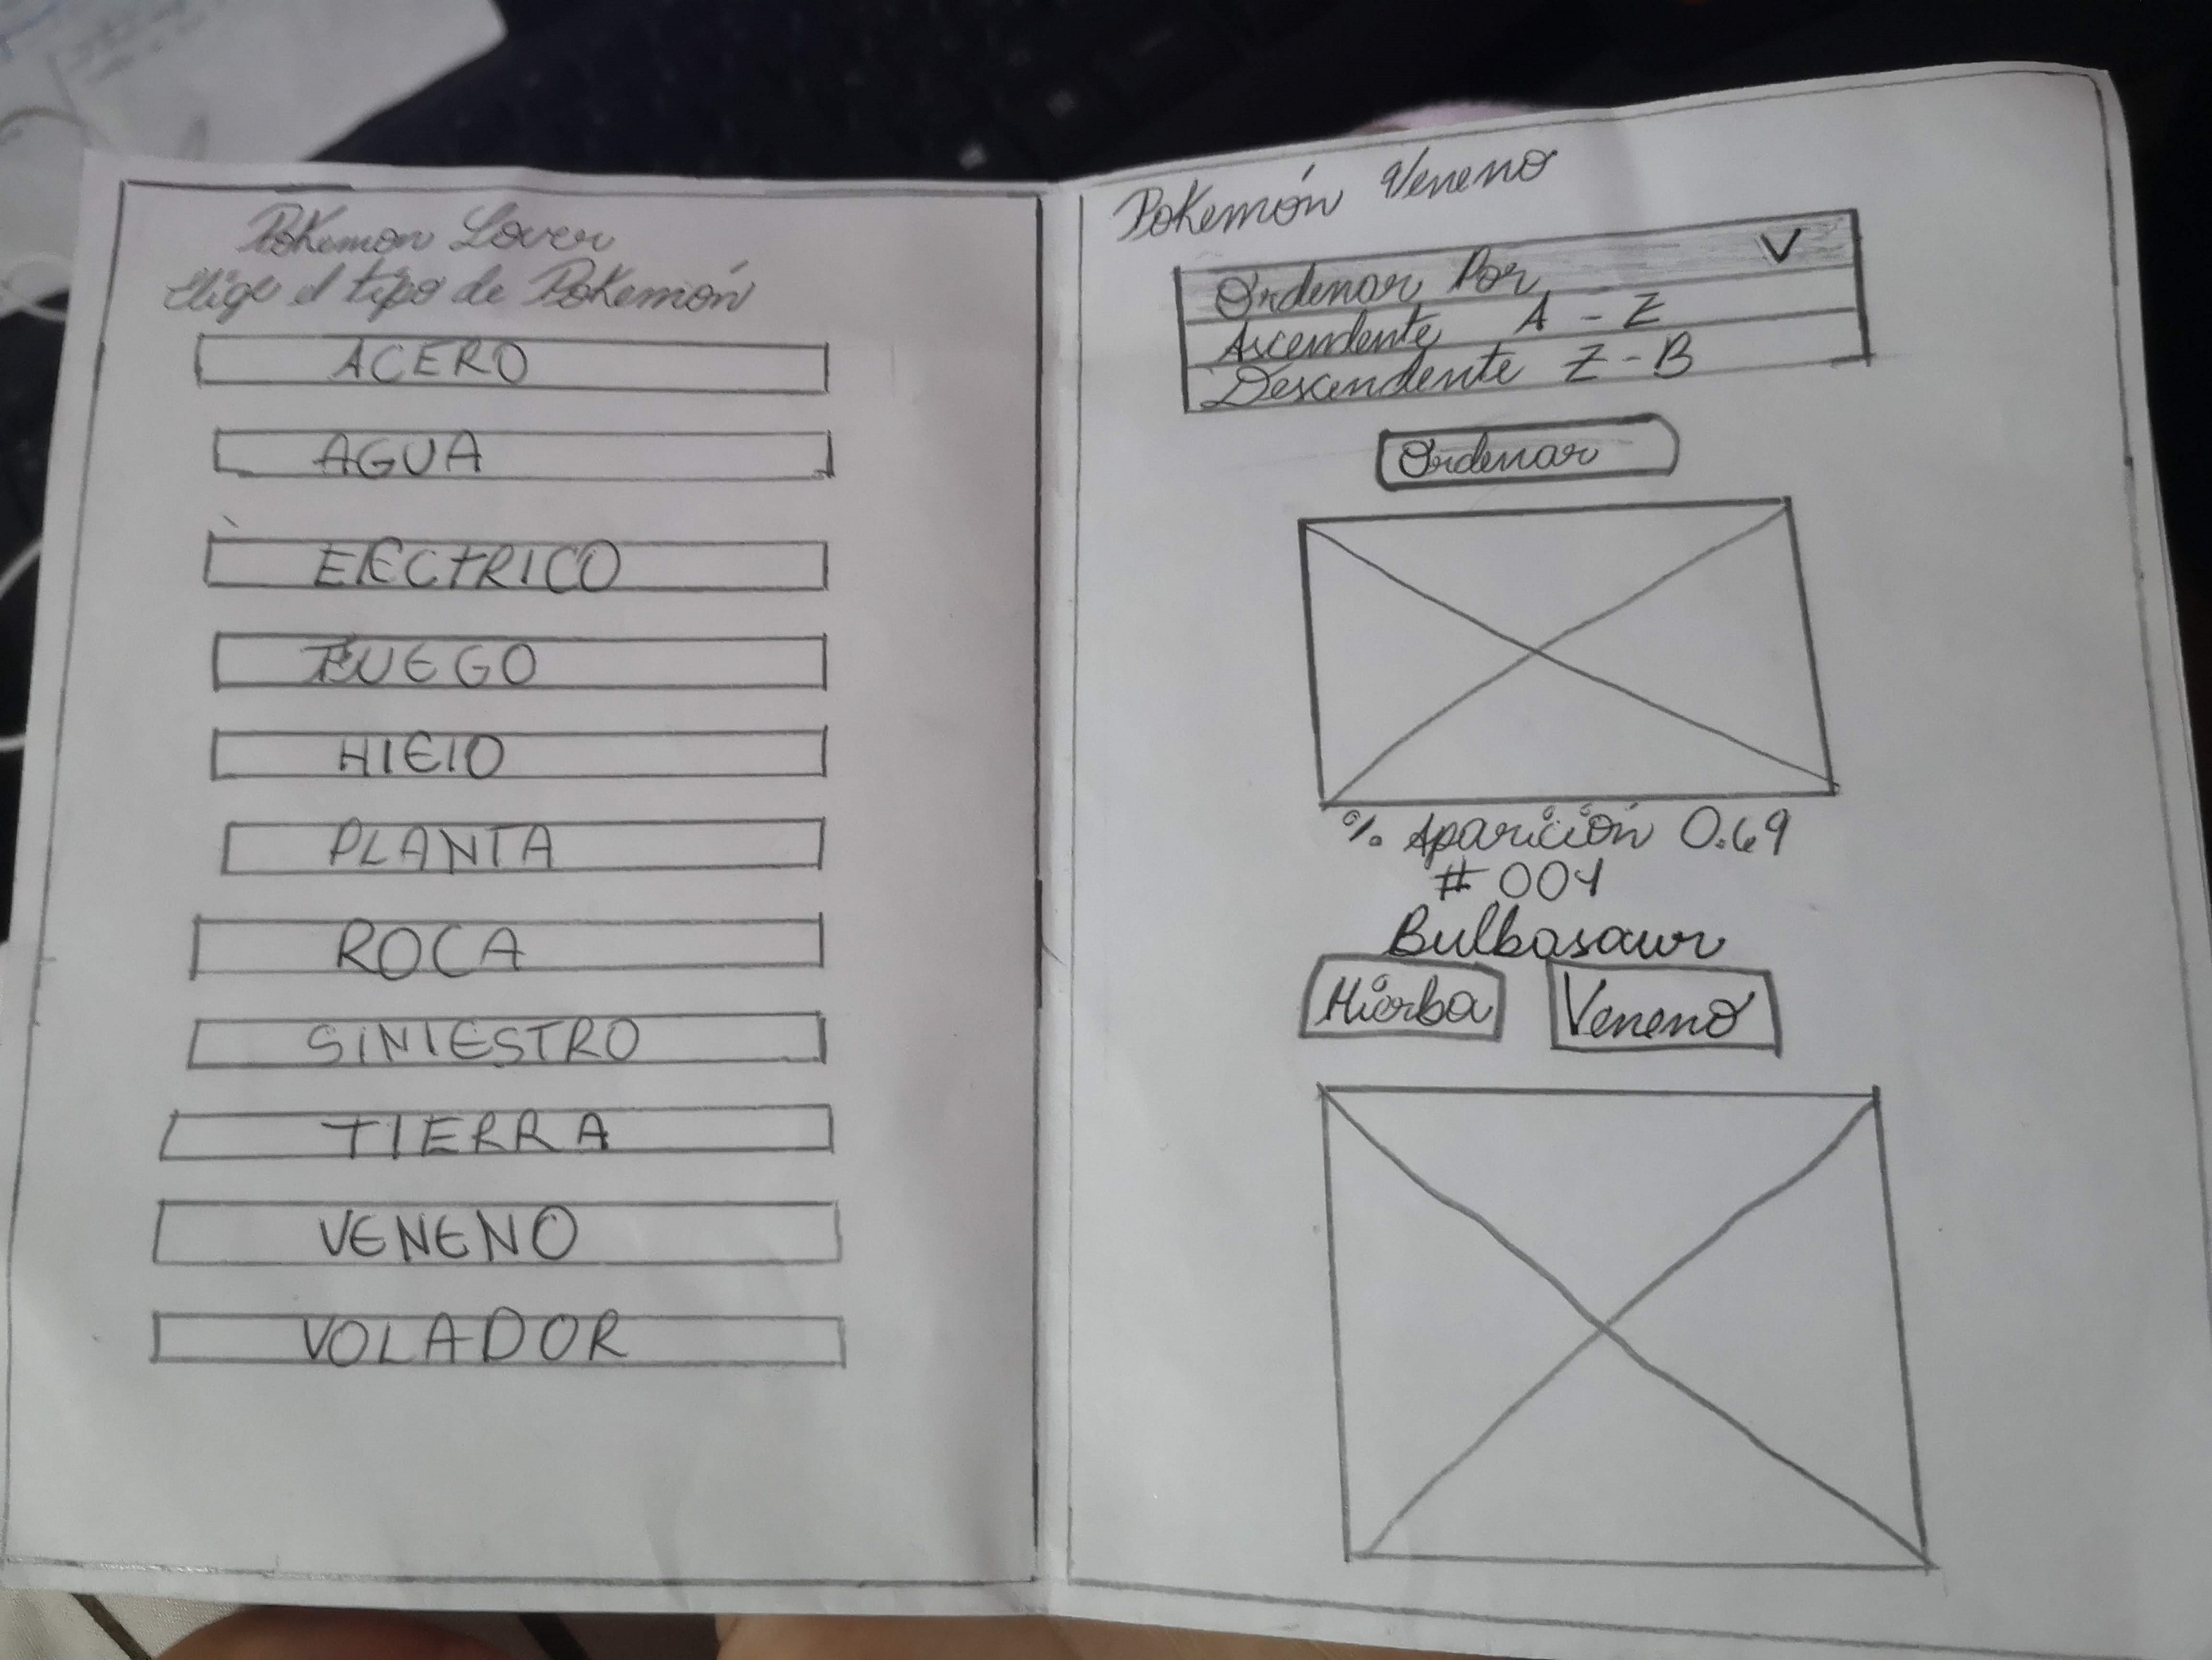 Pokemon Lover
Elige el tipo de Pokemón
ACERO
AGUA
ElECTRICO
FUEGO
HIElO
PLANTA
ROCA
SINIESTRO
TIERRA
VENENO
VOLADOR
Pokemón Veneno
Ordenar Por V
Ascendente A - Z
Descendente Z - B
Ordenar
% Aparición 0.69
# 001
Bulbasaur
Hierba Veneno